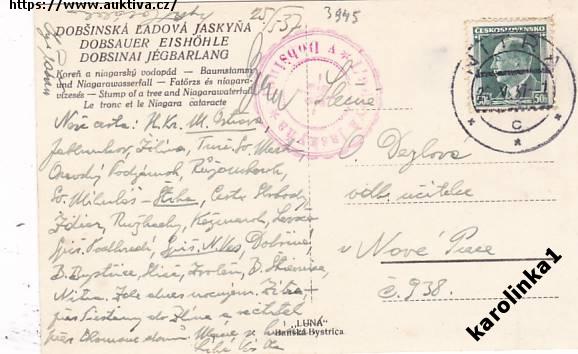 https://www.auktiva.cz/
DOBŠINSKÁ ĽADOVÁ JASKYŇA
DOBSAUER EISHÖHLE
DOBSINAI JÉGBARLANG
Koreň a niagarský vodopád — Baumstamm
und Niagarawasserfall — Fatörzs és niagara-
vízesés — Stump of a tree and Niagarawaterfall
Le tronc et le Niagara cataracte
25/ 37
3945
ČESKOSLOVENSKO
50
C
Naše cesta: H. Kr. M. Ostrava
Jablunkov, Žilina, Turč. Sv. Mart.
Oravský Podzámok, Ružomberok,
Sv. Mikuláš - Štrba, Cesta Slobody,
Ružbachy, Kežmarok, Levoča
Spiš. Podhradí, Spiš. N. Ves, Dobšiná
B. Bystrica, Zvolen, B. Štiavnica
Nitra. Zde dnes nocujem. Zítra
přes Piešťany do Zlína a
přes Olomouc domů.
Slečna
odb. učitelka
v Nové Pace
č. 938.
"LUNA"
Banská Bystrica
karolinka1